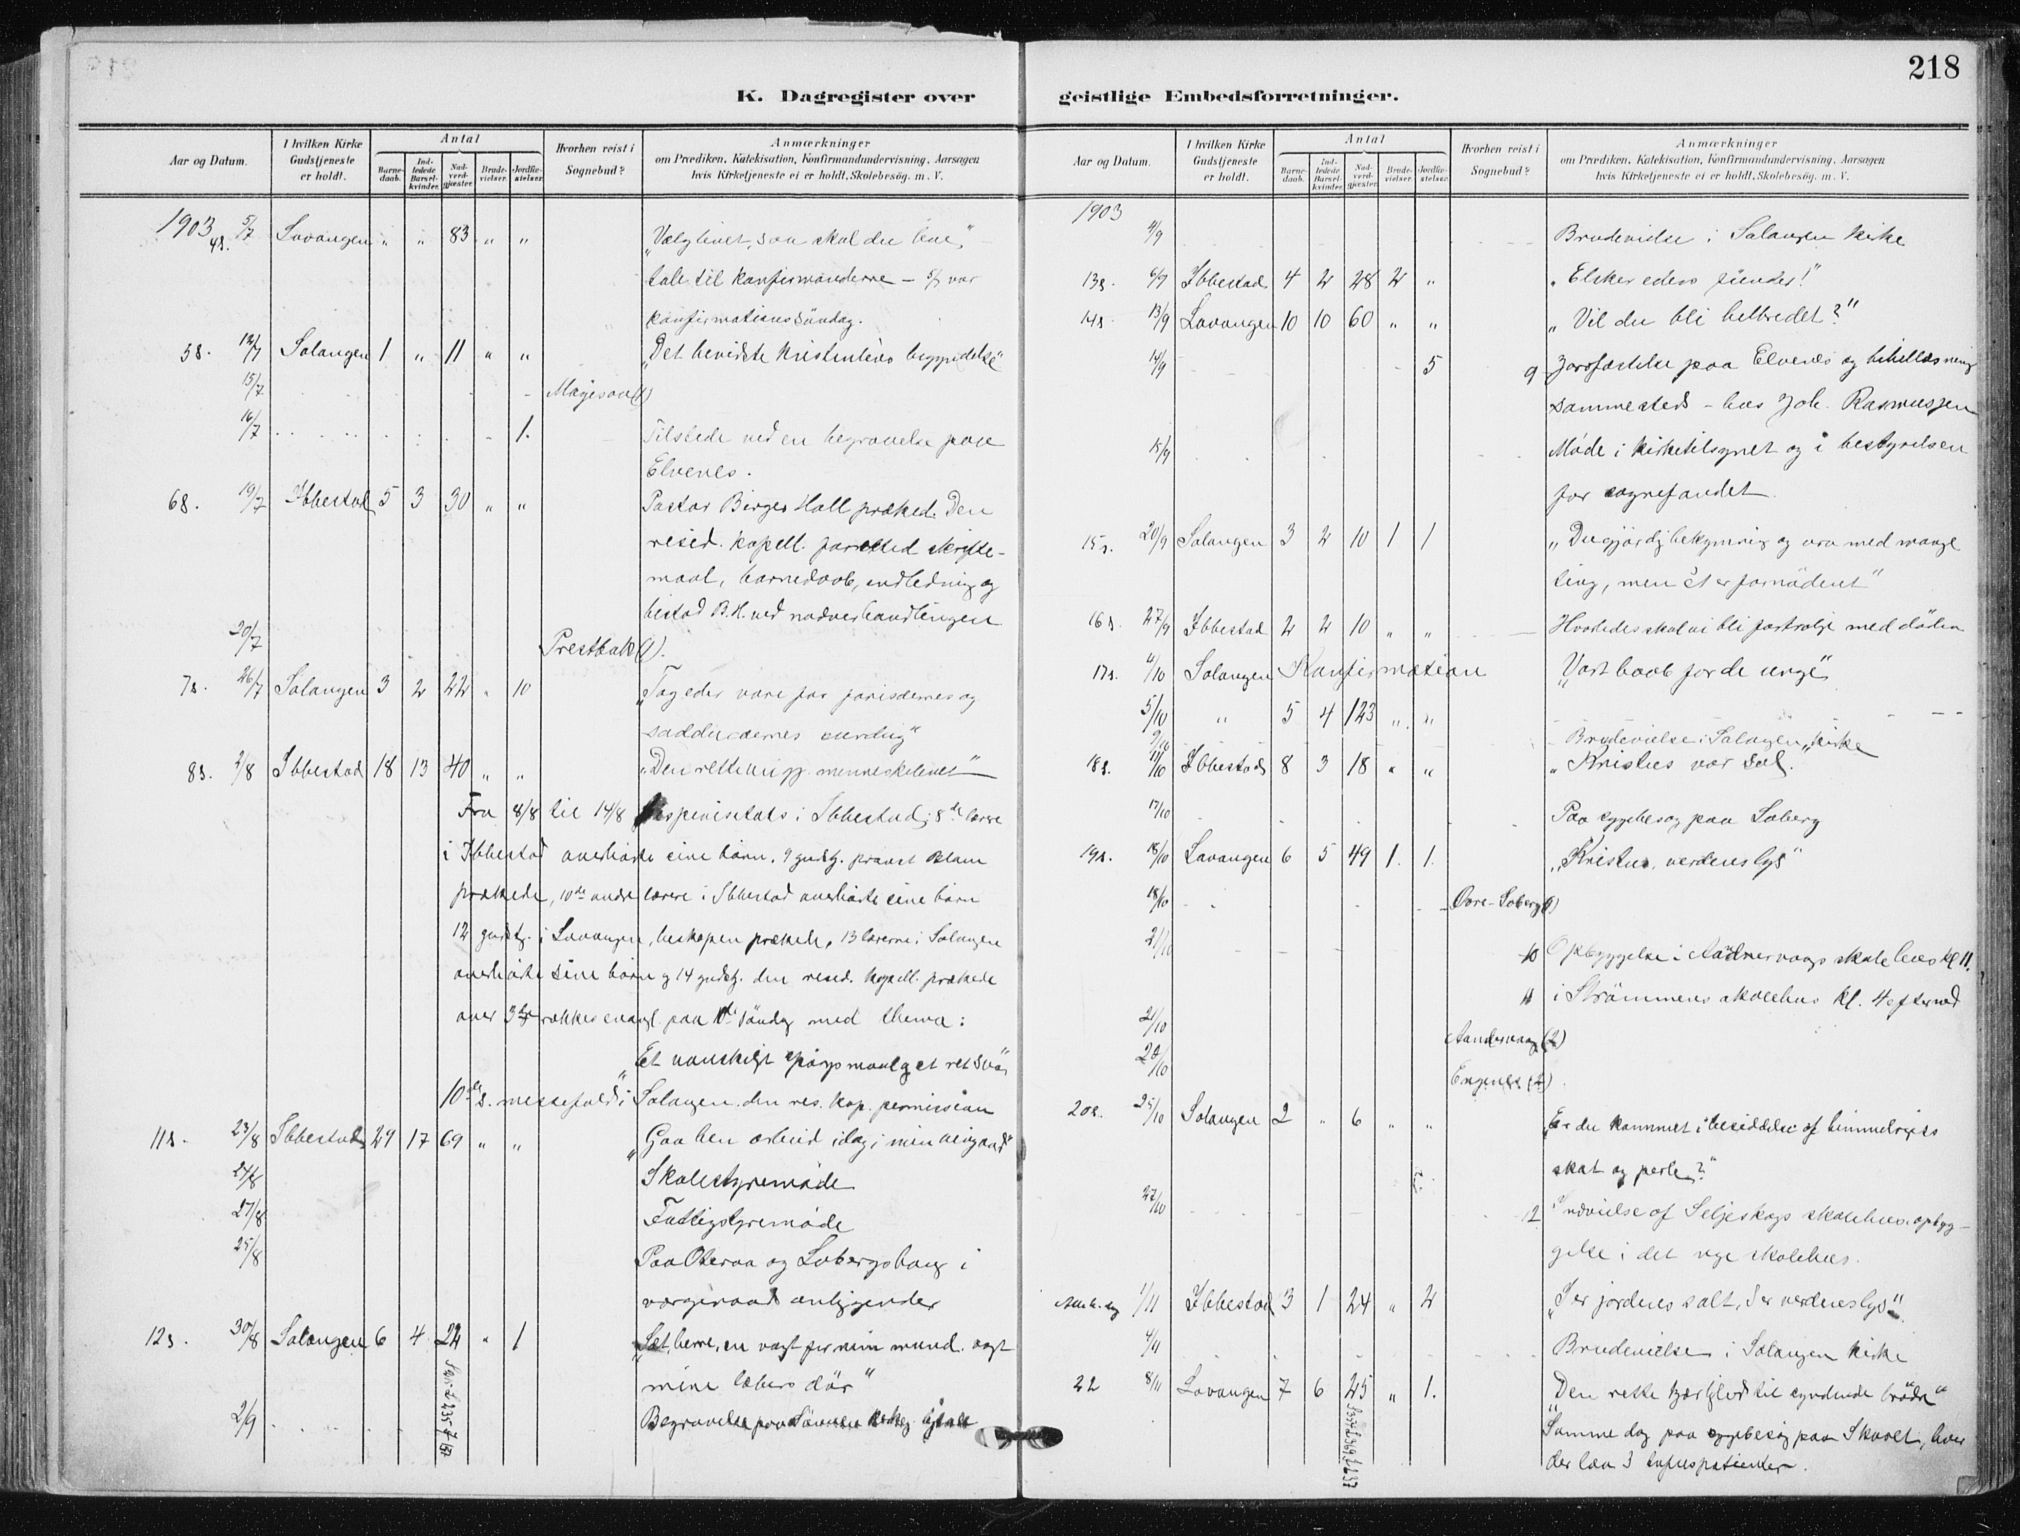 218
K. Dagregister over geistlige Embedsforretninger.
Aar og Datum.
I hvilken Kirke Gudstjeneste er holdt.
Antal
Barne-daab.
Ind-ledede Barsel-kvinder.
Nad-verd-gjæster.
Brude-vielser.
Jordfæ-stelser.
Hvorhen reist i Sognebud?
Anmærkninger
om Prædiken, Katekisation, Konfirmandundervisning, Aarsagen
hvis Kirketjeneste ei er holdt, Skolebesøg. m. V.
1903 4s. 5/7 Lavangen „ „ 83 „ „ „Vælg livet, saa skal du leve",
tale til konfirmanderne – 5/7 var
konfirmationssöndag.
5s. 12/7 Salangen 1 „ 11 „ „ „Det bevidste kristenlivs begyndelse"
15/7 (1)
16/7 1. Tilstede ved en begravelse paa
Elvenes.
6s. 19/7 Ibbestad 5 3 30 „ „ Pastor Birger Hall prækede. Den
resid. kapell. forretted skrifte-
maal, barnedaab, indledning og
bistod B.H. ved nadverhandlingen
20/7 Prestbak (1).
7s. 26/7 Salangen 3 2 22 „ 10 „Tag eder vare for farisæernes og
sadducæernes surdeig"
8s. 2/8 Ibbestad 18 13 40 „ „ „Den rette menneskelivet"
Fra 8/8 til 14/8 bispevisitats i Ibbestad; 8de lærere
i Ibbestad overhørte sine børn, 9 gudstj. provst
prækede, 10de andre lærere i Ibbestad overhørte sine børn
12 gudstj. i Lavangen, biskopen prækede, 13 lærerne i Salangen
overhørte sine børn og 14 gudstj. den resid. kapell. prækede
over 3die rækkes evangl. paa 10de söndag med thema:
„Et vanskeligt spørgsmaal og et ret svar
10de s. messefald i Salangen. den res. kap. permission
11s. 23/8 Ibbestad 29 17 69 „ „ „Gaa hen arbeid idag i min vingaard"
24/8 Skolestyremøde
27/8 Fattigstyremøde
25/8 Paa Oteraa og Sobergshaug i
vergeraads anliggender
12s. 30/8 Salangen 6 4 22 „ 1 „Sæt, herre, en vagt for min mund, vogt
mine læbers dør"
2/9 Begravelse paa
Aar og Datum.
I hvilken Kirke Gudstjeneste er holdt.
Antal
Barne-daab.
Ind-ledede Barsel-kvinder.
Nad-verd-gjæster.
Brude-vielser.
Jordfæ-stelser.
Hvorhen reist i Sognebud?
Anmærkninger
om Prædiken, Katekisation, Konfirmandundervisning, Aarsagen
hvis Kirketjeneste ei er holdt, Skolebesøg. m. V.
1903
4/9 Brudevielse i Salangen kirke
13s. 6/9 Ibbestad 4 2 28 2 „ „Elsker eders fiender!"
14s. 13/9 Lavangen 10 10 60 „ „ „Vil du bli helbredet?"
14/9 5 9 Jordfæstelse paa Elvenes og bibellæsning
sammesteds – hos Joh. Rasmussen
15/9 Møde i kirketilsynet og i bestyrelsen
for sognefondet.
15s. 20/9 Salangen 3 2 10 1 1 „Du gjør dig bekymring og uro med mange
ting, men ét er fornødent"
16s. 27/9 Ibbestad 2 2 10 „ „ Hvorledes skal vi bli fortrolige med døden
17s. 4/10 Salangen Konfirmation „Vort haab for de unge"
5/10 „ 5 4 123 „ „
9/10 Brudevielse i Salangen kirke
18s. 11/10 Ibbestad 8 3 18 „ „ „Kristus vor sol."
17/10 Paa sygebesøg paa Soberg
19s. 18/10 Lavangen 6 5 49 1. 1. „Kristus, verdens lys"
18/10 Øvre-Soberg (1)
21/10 10 Opbyggelse i skolehus kl 11.
11 i Strømmens skolehus kl. 4 efterm.
21/10 (2)
Engenes (2).
20s. 25/10 Salangen 2 „ 6 „ „ „Er du kommet i besiddelse af himmelriges
skat og perle?"
27/10 12 Indvielse af Seljeskogs skolehus. opbyg-
gelse i det nye skolehus.
Alleh. dag 1/11 Ibbestad 3 1 24 „ 2 „I er jordens salt, I er verdens lys".
4/11 Brudevielse i Salangen kirke
22 8/11 Lavangen 7 6 25 „ 1. „Den rette kjærlighed til syndende brødre"
Samme dag paa sygebesøg paa, hvor
der laa 3 tyfuspatienter.